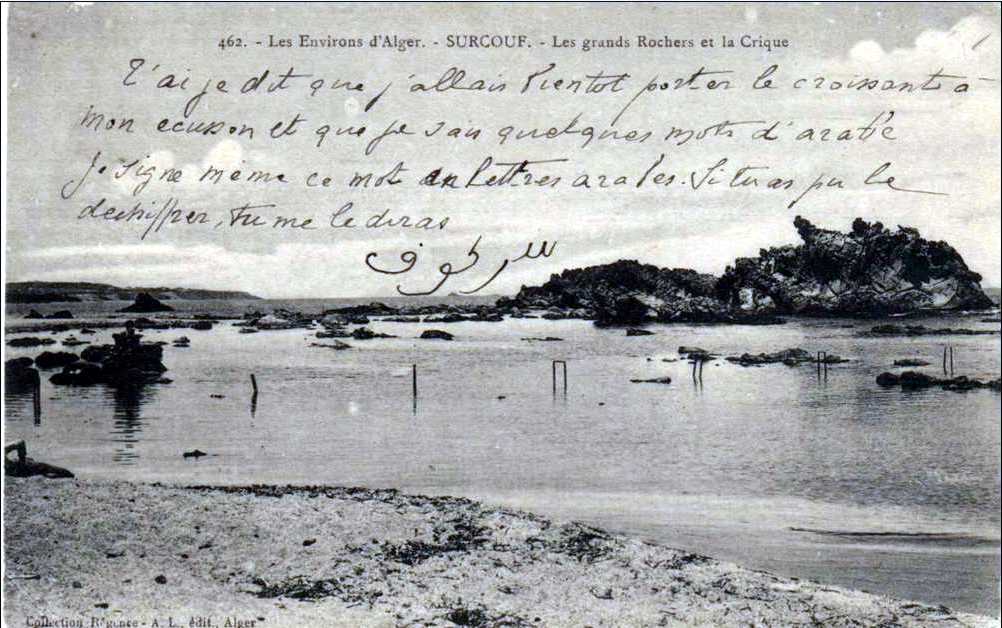 462. - Les Environs d'Alger. - SURCOUF. - Les grands Rochers et la Crique
T'ai je dit que j'allais bientot porter le croissant à
mon ecusson et que je sais quelques mots d'arabe
Je signe même ce mot en lettres arabes. Si tu as pu le
dechiffrer, tu me le diras
سركوف
Collection Régence - A. L., édit., Alger